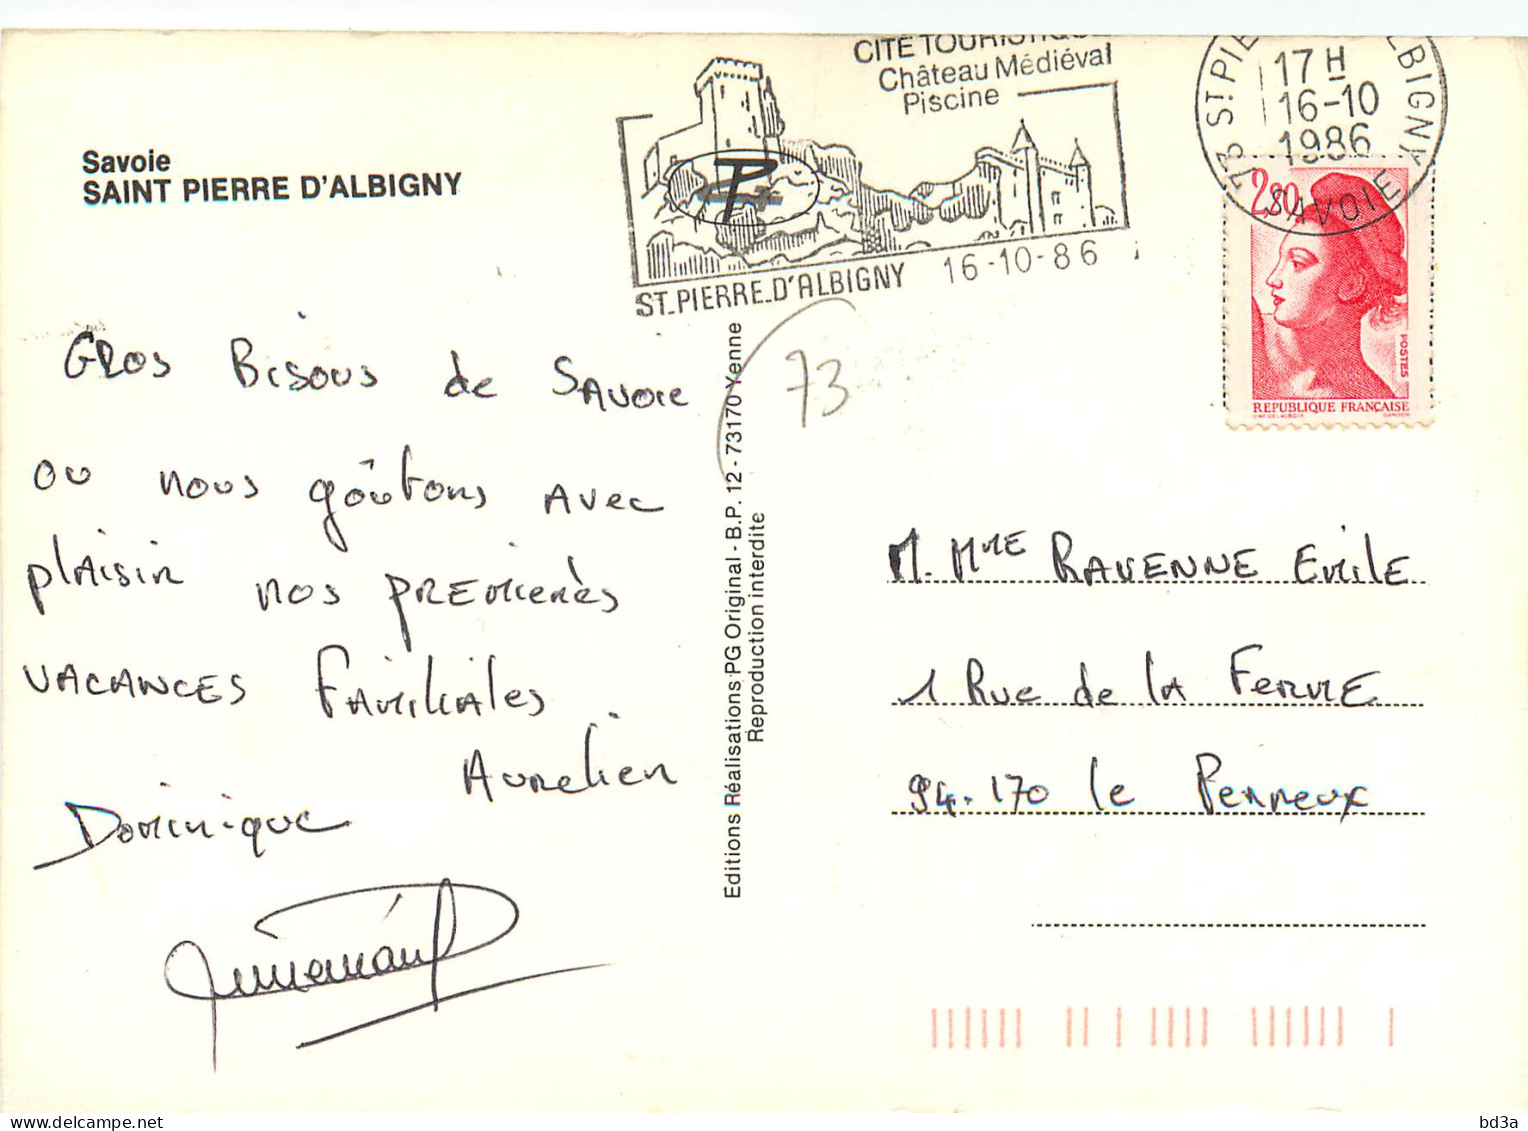 Savoie
SAINT PIERRE D'ALBIGNY
CITE TOURISTIQUE
Château Médiéval
Piscine
ST.PIERRE.D'ALBIGNY 16-10-86
73 ST PIERRE D'ALBIGNY
17 H
16-10
1986
SAVOIE
2,20
POSTES
REPUBLIQUE FRANÇAISE
73
Gros Bisous de Savoie
ou nous goûtons avec
plaisir nos premières
vacances familiales
Aurelien
Dominique
Editions Réalisations PG Original - B.P. 12 - 73170 Yenne
Reproduction interdite
M. Mme RAVENNE Emile
1 Rue de la Ferme
94.170 le Perreux
bd3a